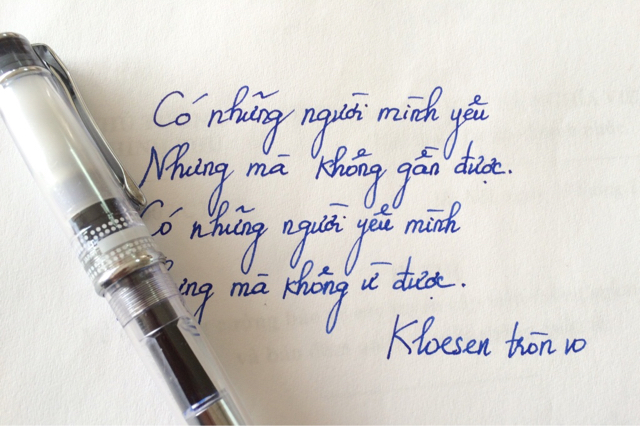 Có những người mình yêu
Nhưng mà không gần được.
Có những người yêu mình
mà không ừ được.
Kloesen tròn vo